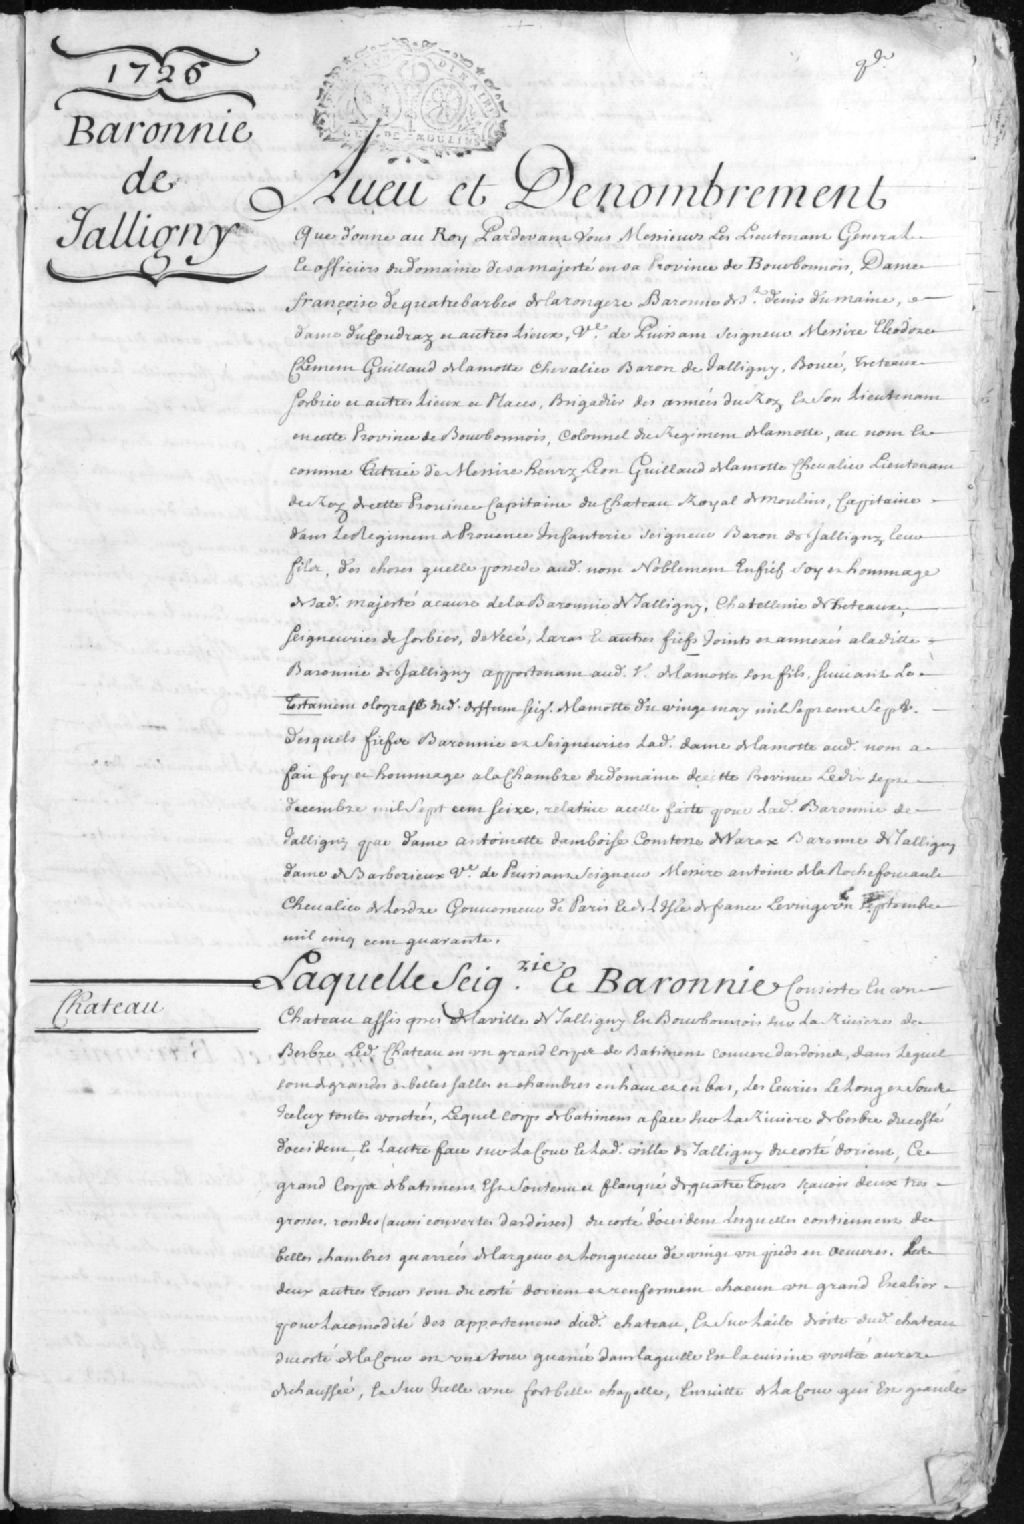 1726
Baronnie
de
Jalligny
Aueu et Denombrement
Que donne au Roy Pardevant Vous Messieurs Les Lieutenant General
Et officiers du domaine de sa majesté en sa Province de Bourbonnois, Dame
françoise de quatrebarbes de la rongere Baronne de St. denis du maine, et
dame du Coudray et autres Lieux, Ve. de Puissant Seigneur Messire Theodore
Clement Guillaud de lamotte Chevalier Baron de Jalligny, Boucé, Treteaux
Sorbier et autres Lieux et Places, Brigadier des armées du Roy Et Son Lieutenant
en cette Province de Bourbonnois, Colonnel du Regiment de lamotte, au nom Et
comme Tutrice de Messire henry Leon Guillaud de lamotte Chevalier Lieutenant
de Roy de cette Province Capitaine du Chateau Royal de moulins, Capitaine
dans Le Regiment de Provence Infanterie Seigneur Baron de Jalligny leur
fils, des choses quelle possede aud. nom Noblement En fief foy et hommage
de sad. majesté a cause de la Baronnie de Jalligny, Chatellenie de treteaux,
Seigneuries de Sorbier, de Vecé, Laras Et autres fiefs Joints et annexés a la ditte
Baronnie de Jalligny appartenant aud. S. de lamotte son fils, suivant Le
Testament olografe dud. deffunt seig. de lamotte du vingt may mil Sept cent Sept.
Desquels fiefs Baronnie et Seigneuries Lad. dame de lamotte aud. nom a
fait foy et hommage a la Chambre du domaine de cette Province Le dix sept
decembre mil Sept cent Seize, relative a celle faite pour Lad. Baronnie de
Jalligny par dame antoinette damboise Comtesse de Varax Baronne de Jalligny
dame de Barbezieux Ve. de Puissant Seigneur Messire antoine de la Rochefoucault
Chevalier de Lordre Gouverneur de Paris Et de L'Isle de france Le vingt un Septembre
mil cinq cent quarante.
Laquelle Seig.rie Et Baronnie Consiste En un
Chateau
Chateau assis pres de la ville de Jalligny En Bourbonnois sur La Riviere de
Besbre Led. Chateau en un grand Corps de Batiment couvert dardoises, dans Lequel
sont de grandes et belles salles et chambres en haut et en bas, Les Ecuries Le Long et Sous
Iceluy toutes voutées, Lequel Corps de batiment a face sur La Riviere de besbre du costé
doccident, Et Lautre face sur La Cour Et Lad. ville de Jalligny du costé dorient, Ce
grand Corps de batiment Est Soutenu et flanqué de quatre Tours sçavoir deux tres
grosses, rondes (aussi couvertes dardoises) du costé d'occident Lesquelles contiennent de
belles chambres quarrées de largeur et Longueur de vingt un pieds en oeuvres. Les
deux autres Tours sont du costé dorient et renferment chacun un grand Escalier
pour La comodité des appartemens dud. chateau, Et Sur Laile droite dud. chateau
du costé de la Cour est une tour quarrée dans laquelle Est la cuisine voutée au rez
de chaussée, Et Sur Icelle une fort belle chapelle, Ensuitte de La Cour qui Est grande